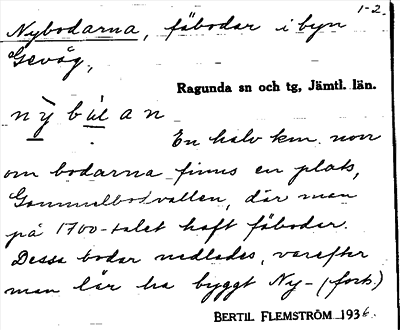 1-2.
Nybodarna, fäbodar i byn
Gevåg,
Ragunda sn och tg, Jämtl. län.
nỳbúan
En halv km. norr
om bodarna finns en plats,
Gammelbodvallen, där man
på 1700-talet haft fäbodar.
Dessa bodar nedlades, varefter
man lär ha byggt Ny- (forts.)
BERTIL FLEMSTRÖM 1936.